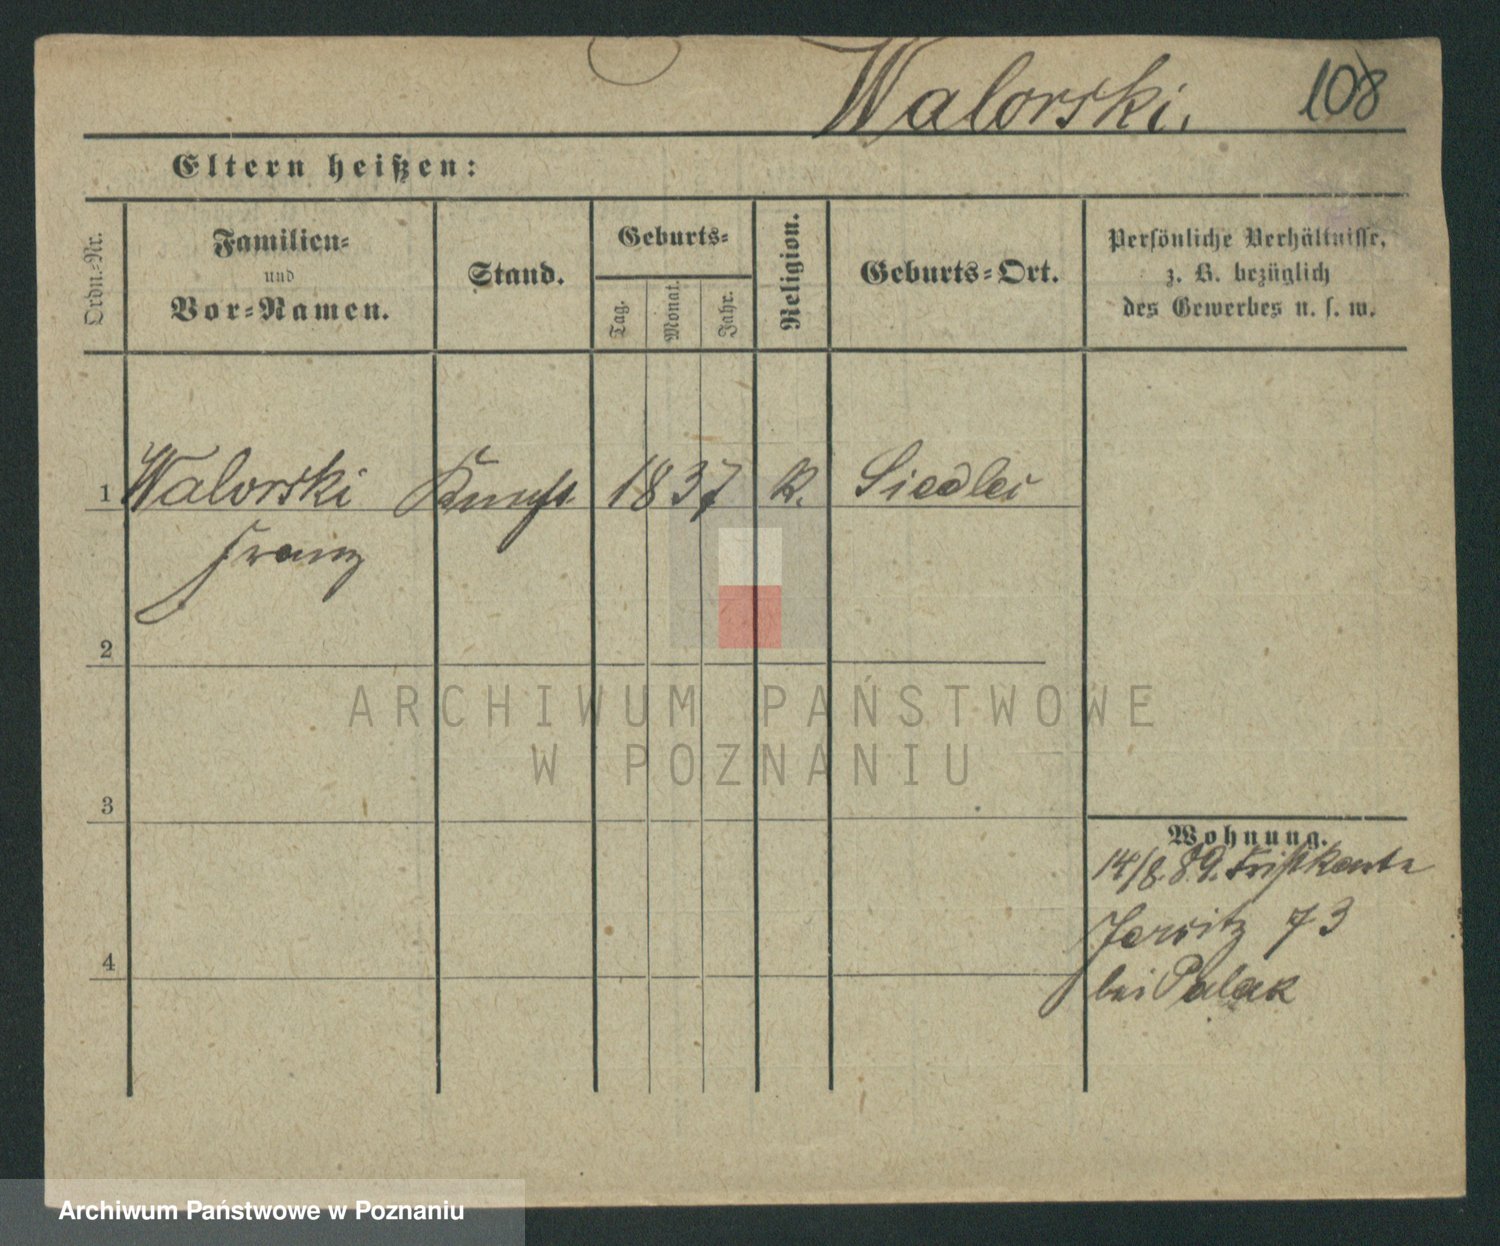 Walorski. 108
Eltern heißen:
Ordn.-Nr.
Familien-
und
Vor-Namen.
Stand.
Geburts-
Tag.
Monat.
Jahr.
Religion.
Geburts-Ort.
Persönliche Verhältnisse,
z. B. bezüglich
des Gewerbes u. s. w.
1 Walorski 1837 k. Siedlec
Franz
2
ARCHIWUM PAŃSTWOWE
W POZNANIU
3
Wohnung.
14/8. 89.
Jersitz 73
4
bei Polak
Archiwum Państwowe w Poznaniu